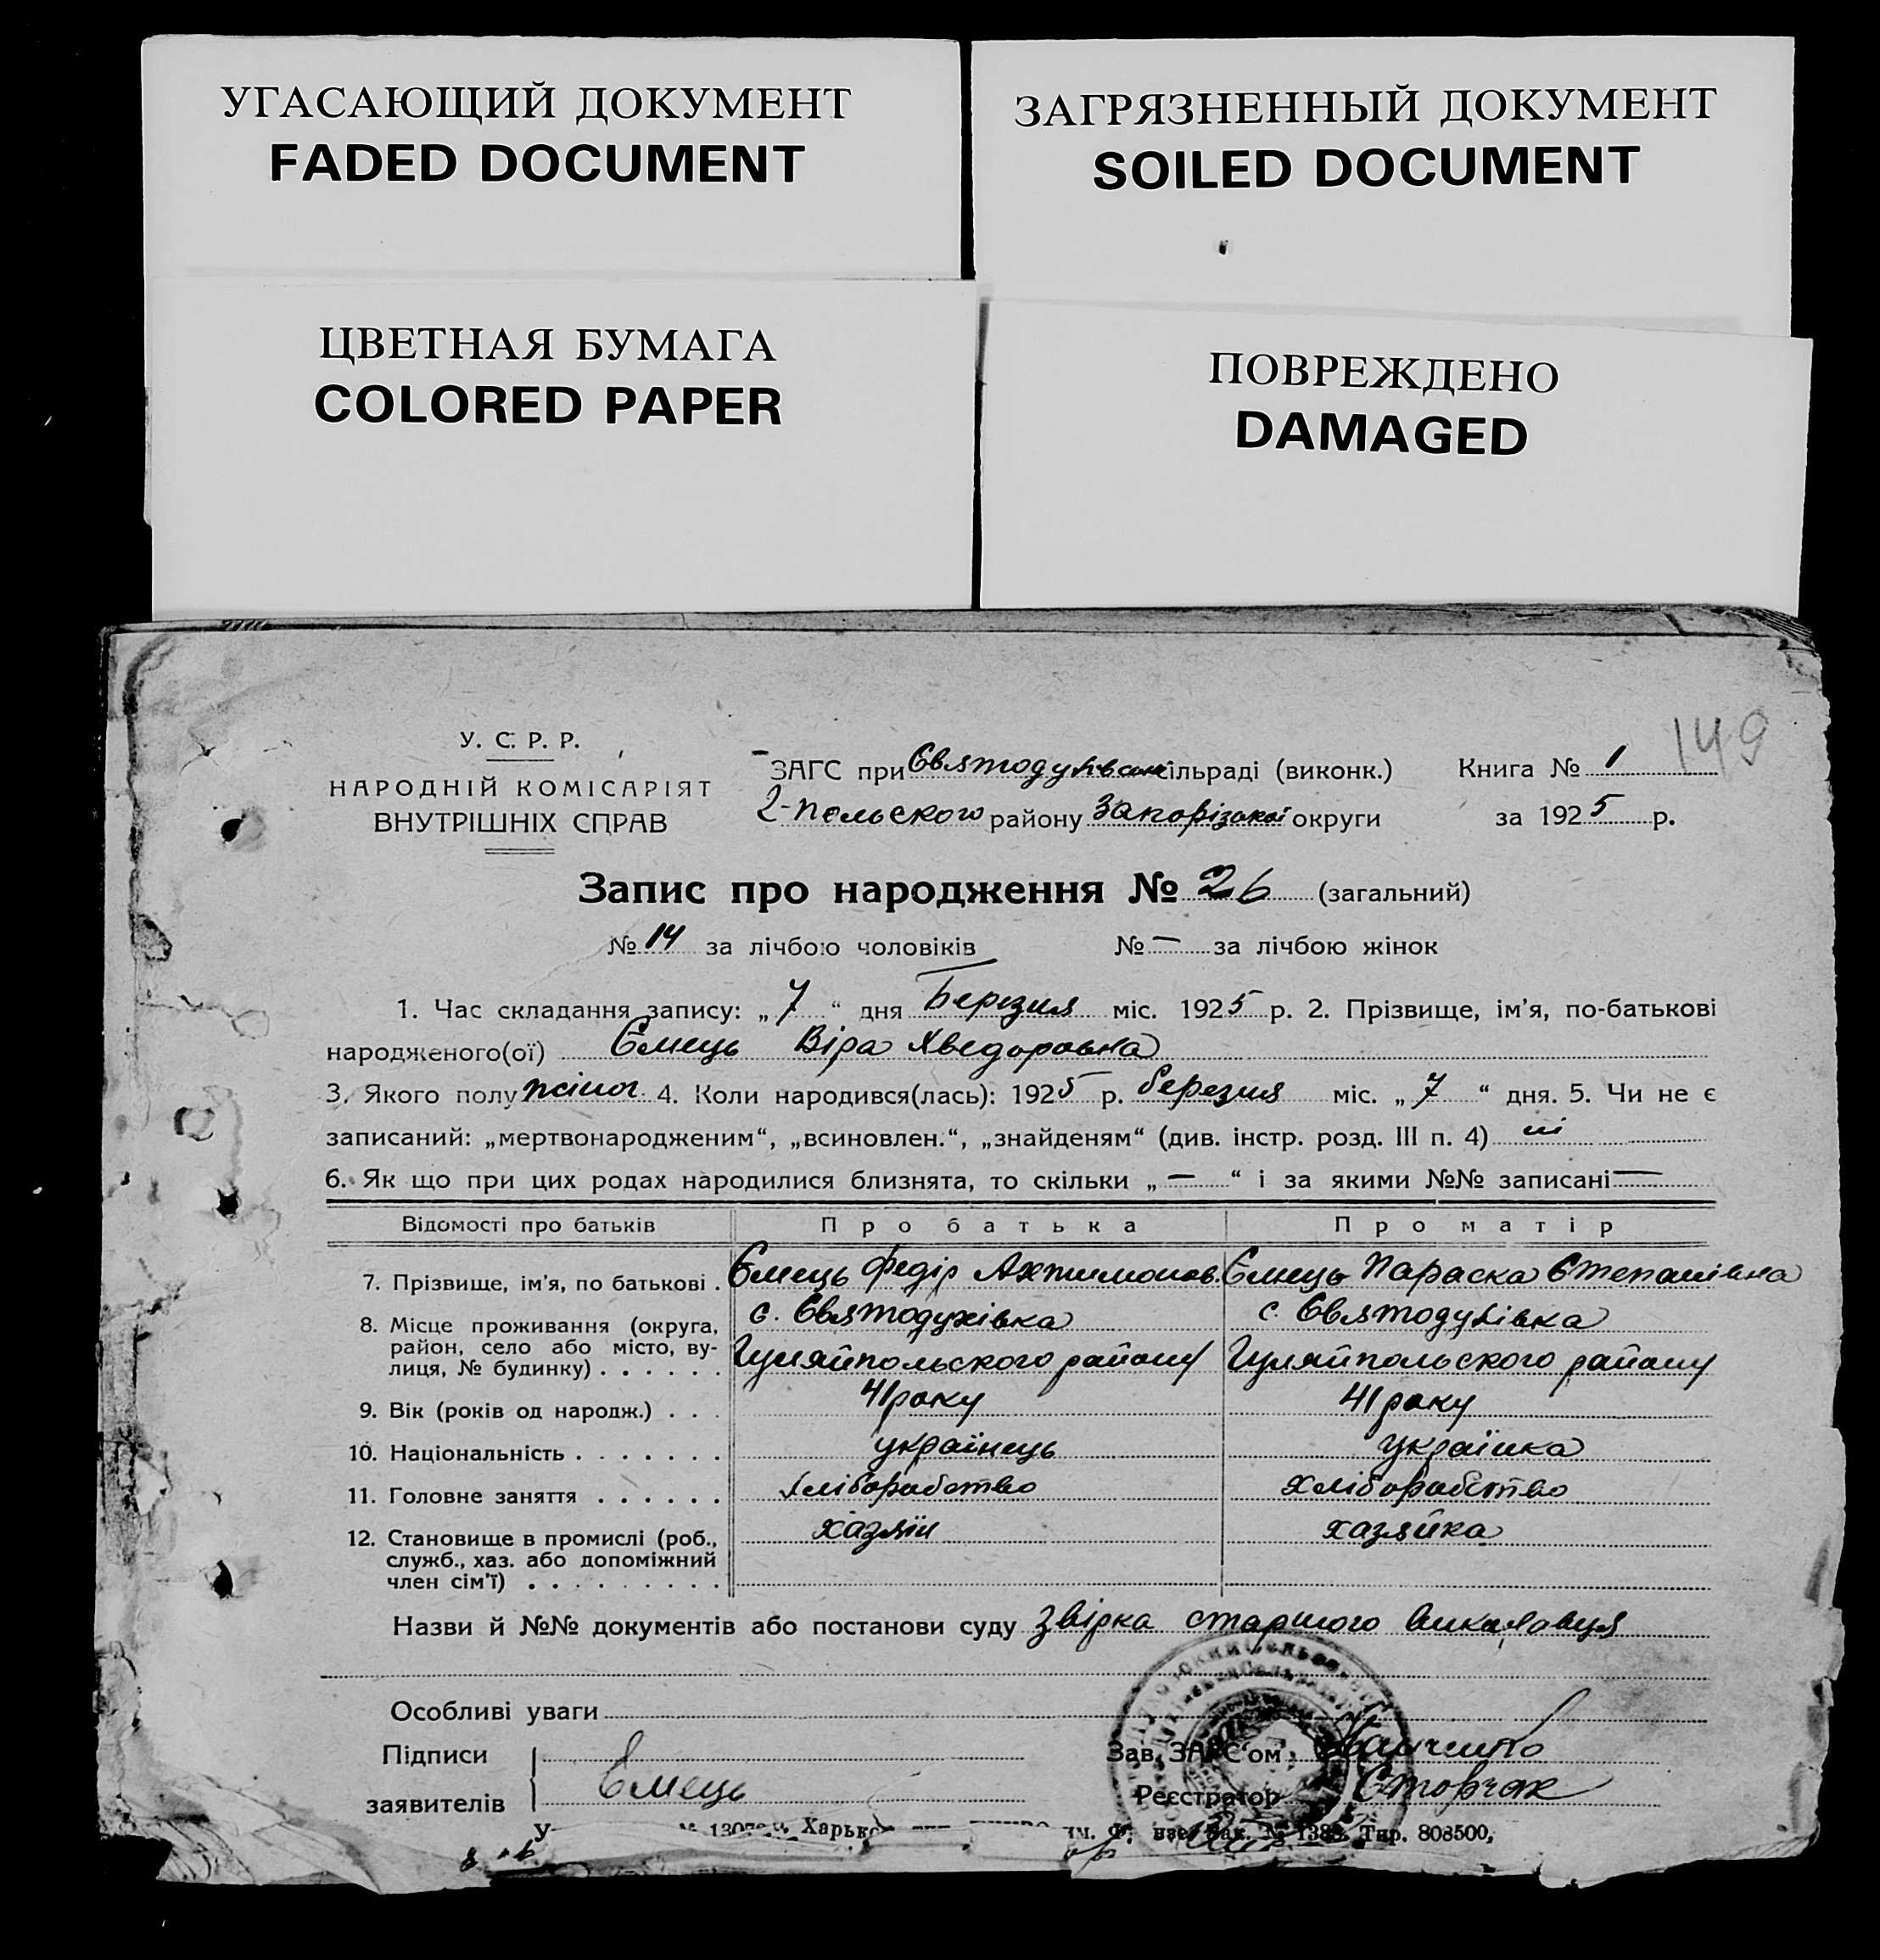 УГАСАЮЩИЙ ДОКУМЕНТ
FADED DOCUMENT
ЗАГРЯЗНЕННЫЙ ДОКУМЕНТ
SOILED DOCUMENT
ЦВЕТНАЯ БУМАГА
COLORED PAPER
ПОВРЕЖДЕНО
DAMAGED
149
У. С. Р. Р.
НАРОДНІЙ КОМІСАРІЯТ
ВНУТРІШНІХ СПРАВ
ЗАГС при Святодухівській сільраді (виконк.)
Г-Польського району Запорізької округи
Книга № 1
за 1925 р.
Запис про народження № 26 (загальний)
№ 14 за лічбою чоловіків № — за лічбою жінок
1. Час складання запису: „ 7 “ дня Березня міс. 1925 р. 2. Прізвище, ім’я, по-батькові
народженого(ої) Ємець Віра Хведоровна
3. Якого полу жіноч 4. Коли народився(лась): 1925 р. березня міс. „ 7 “ дня. 5. Чи не є
записаний: „мертвонародженим“, „всиновлен.“, „знайденям“ (див. інстр. розд. III п. 4) ні
6. Як що при цих родах народилися близнята, то скільки „ — “ і за якими №№ записані —
Відомості про батьків Про батька Про матір
7. Прізвище, ім’я, по батькові . Ємець Федір Ахтимонов. Ємець Параска Степанівна
8. Місце проживання (округа, район, село або місто, ву- лиця, № будинку) . . . . . .
с. Святодухівка с. Святодухівка
Гуляйпольского району Гуляйпольского району
9. Вік (років од народж.) . . . 41 року 41 року
10. Національність . . . . . . . українець українка
11. Головне заняття . . . . . . хліборобство хліборобство
12. Становище в промислі (роб., служб., хаз. або допоміжний член сім’ї) . . . . . . . . . хазяїн хазяйка
Назви й №№ документів або постанови суду Звірка старшого виконавця
Особливі уваги
Підписи
заявителів Ємець
Зав. ЗАГС’ом
Реєстратор Стовчак
Харьк
Зак. № 138 Тир. 808500,